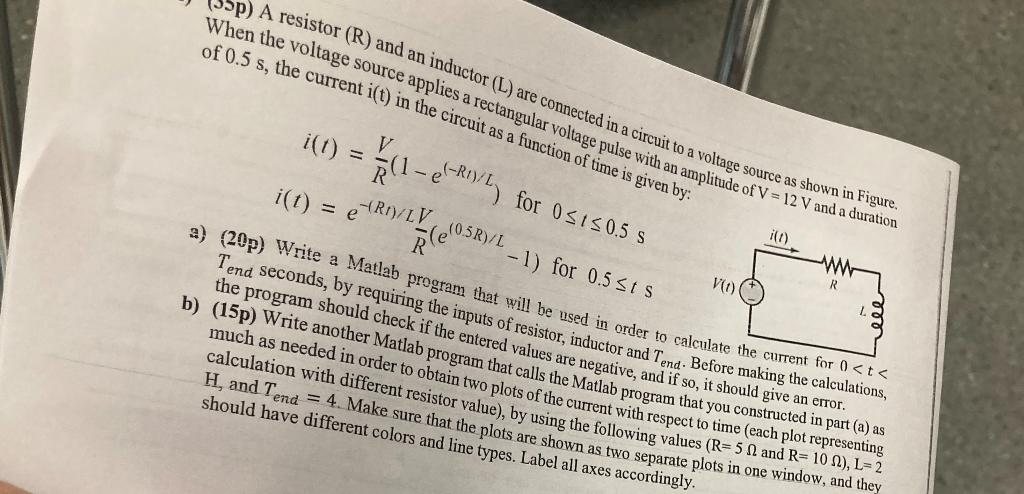 (35p) A resistor (R) and an inductor (L) are connected in a circuit to a voltage source as shown in Figure.
When the voltage source applies a rectangular voltage pulse with an amplitude of V = 12 V and a duration
of 0.5 s, the current i(t) in the circuit as a function of time is given by:
i(t) = V/R (1 − e^((−Rt)/L)) for 0 ≤ t ≤ 0.5 s
i(t) = e^(−(Rt)/L) V/R (e^((0.5R)/L) − 1) for 0.5 ≤ t s
i(t)
V(t)
+
−
R
L
a) (20p) Write a Matlab program that will be used in order to calculate the current for 0 < t <
T_end seconds, by requiring the inputs of resistor, inductor and T_end. Before making the calculations,
the program should check if the entered values are negative, and if so, it should give an error.
b) (15p) Write another Matlab program that calls the Matlab program that you constructed in part (a) as
much as needed in order to obtain two plots of the current with respect to time (each plot representing
calculation with different resistor value), by using the following values (R= 5 Ω and R= 10 Ω), L= 2
H, and T_end = 4. Make sure that the plots are shown as two separate plots in one window, and they
should have different colors and line types. Label all axes accordingly.